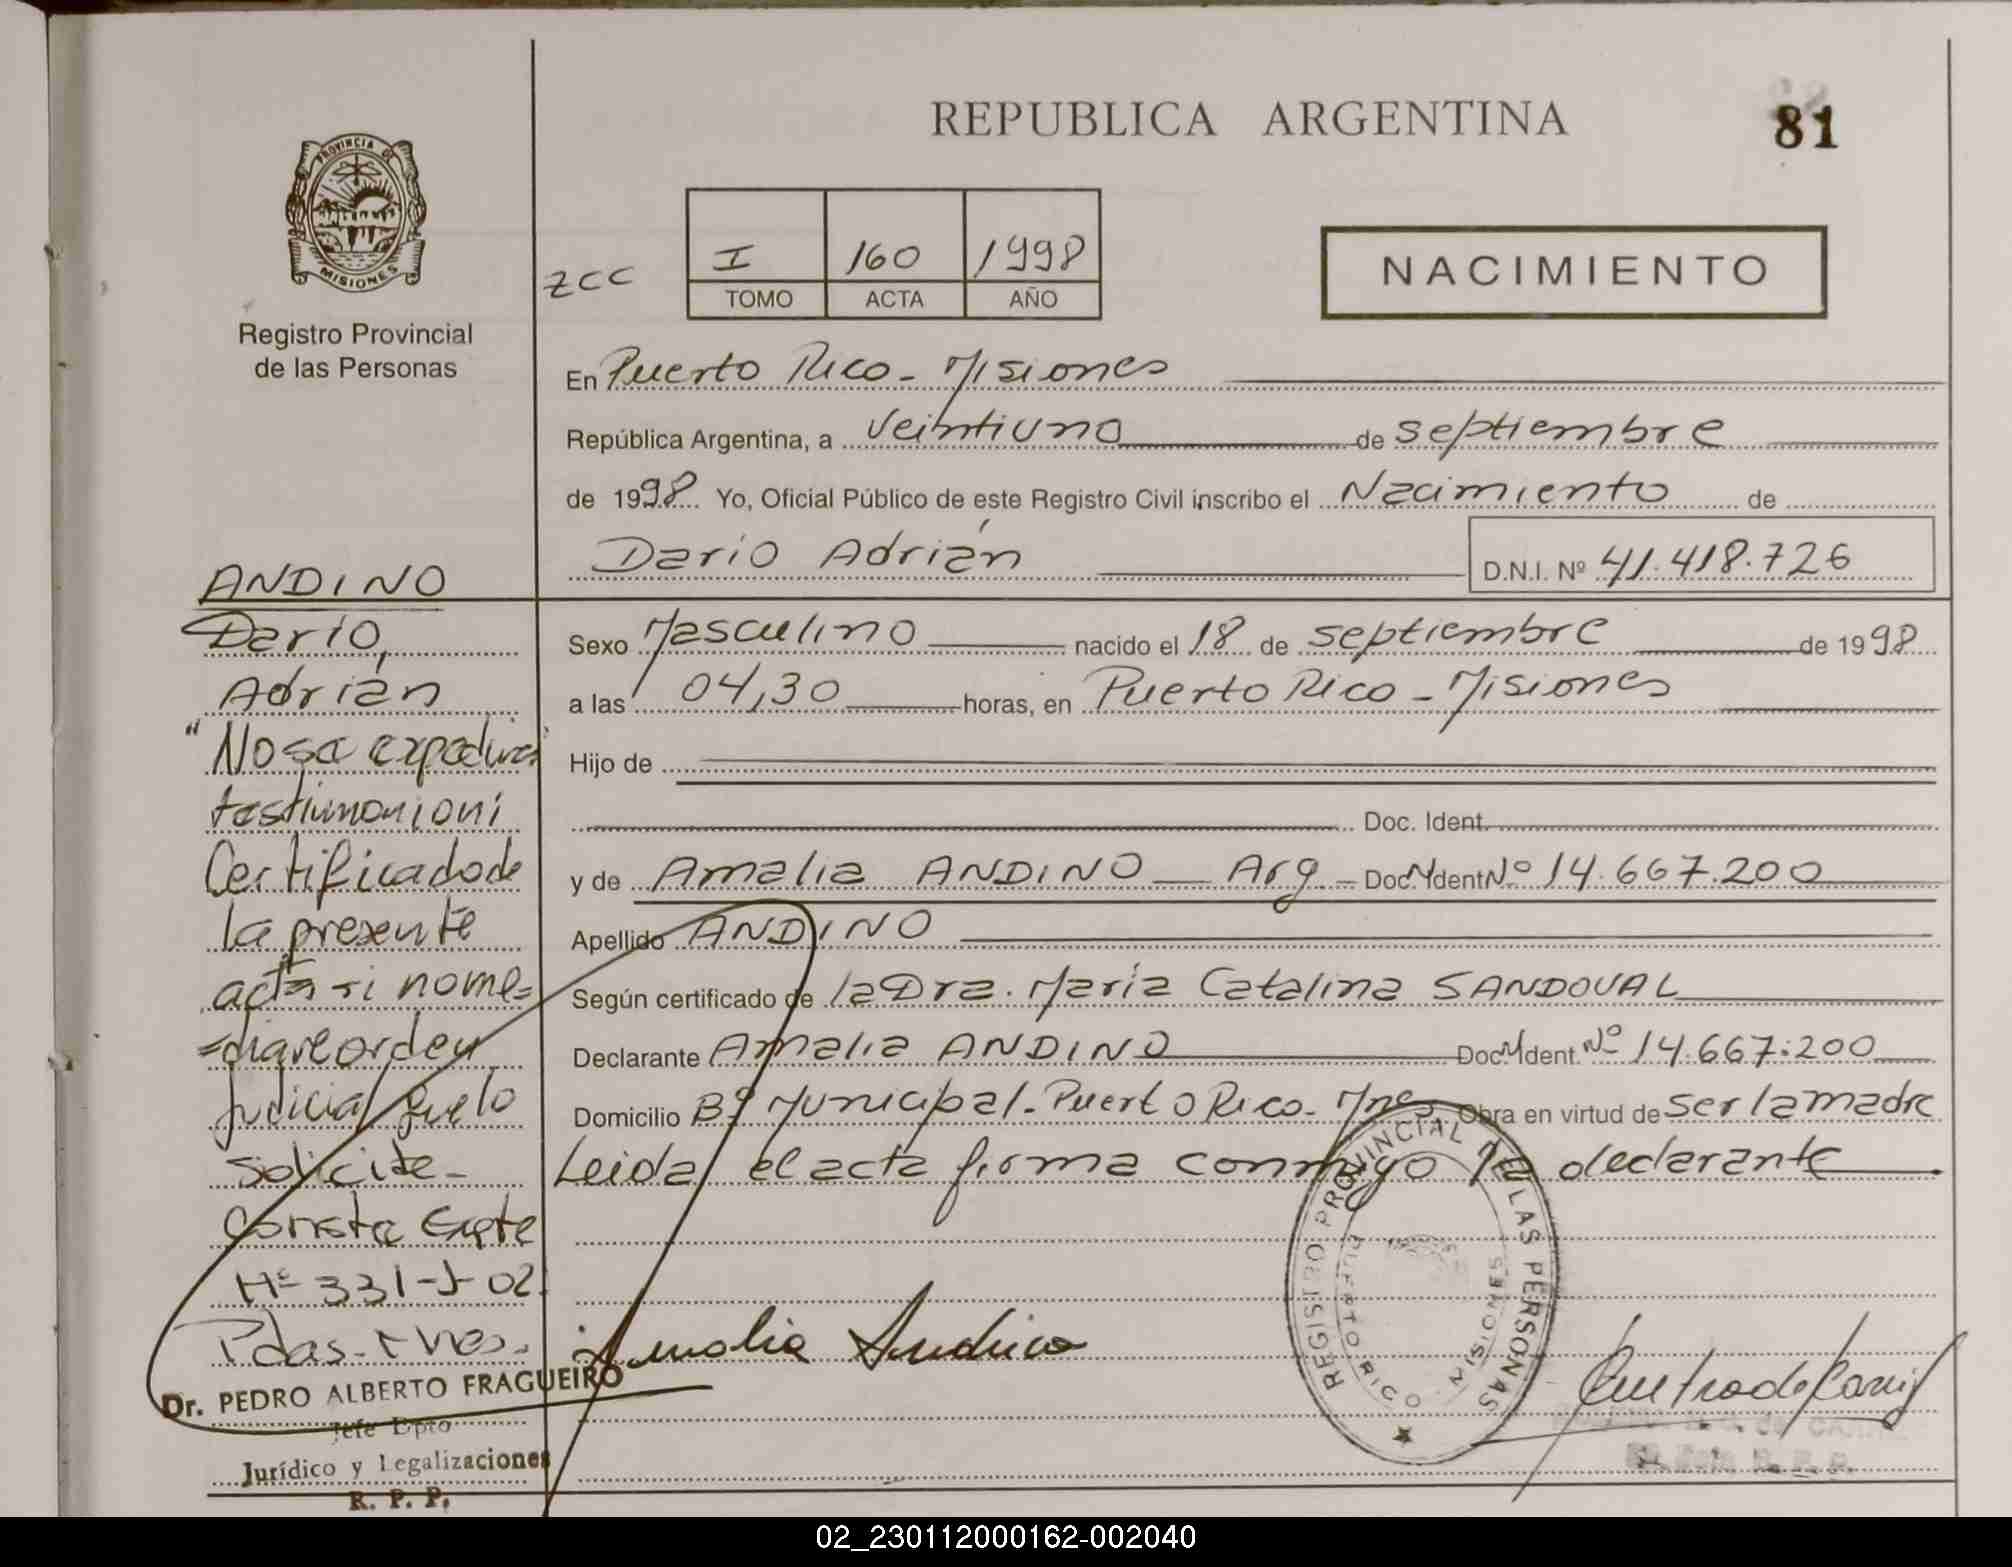 REPUBLICA ARGENTINA
81
PROVINCIA DE
MISIONES
Registro Provincial
de las Personas
ZCC
I 160 1998
TOMO ACTA AÑO
NACIMIENTO
En Puerto Rico - Misiones
República Argentina, a Veintiuno de septiembre
de 1998 Yo, Oficial Público de este Registro Civil inscribo el Nacimiento de
Darío Adrián D.N.I. Nº 41.418.726
Sexo Masculino nacido el 18 de septiembre de 1998
a las 04,30 horas, en Puerto Rico - Misiones
Hijo de
Doc. Ident.
y de Amalia ANDINO Arg - Doc. Ident Nº 14.667.200
Apellido ANDINO
Según certificado de la Dra. María Catalina SANDOVAL
Declarante Amalia ANDINO Doc. Ident. Nº 14.667.200
Domicilio Bº Municipal - Puerto Rico - Mnes. Obra en virtud de ser la madre
Leida el acta firma conmigo la declarante
Amalia Andino
REGISTRO PROVINCIAL DE LAS PERSONAS
PUERTO RICO - MISIONES
ANDINO
Darío,
Adrián
"No se expedirá
testimonio ni
Certificado de
la presente
acta si no me=
=diare orden
Judicial que lo
solicite -
Consta Expte
Nº 331-J-02
Pdas. Mnes.
Dr. PEDRO ALBERTO FRAGUEIRO
Jefe Dpto
Jurídico y Legalizaciones
R. P. P.
02_230112000162-002040